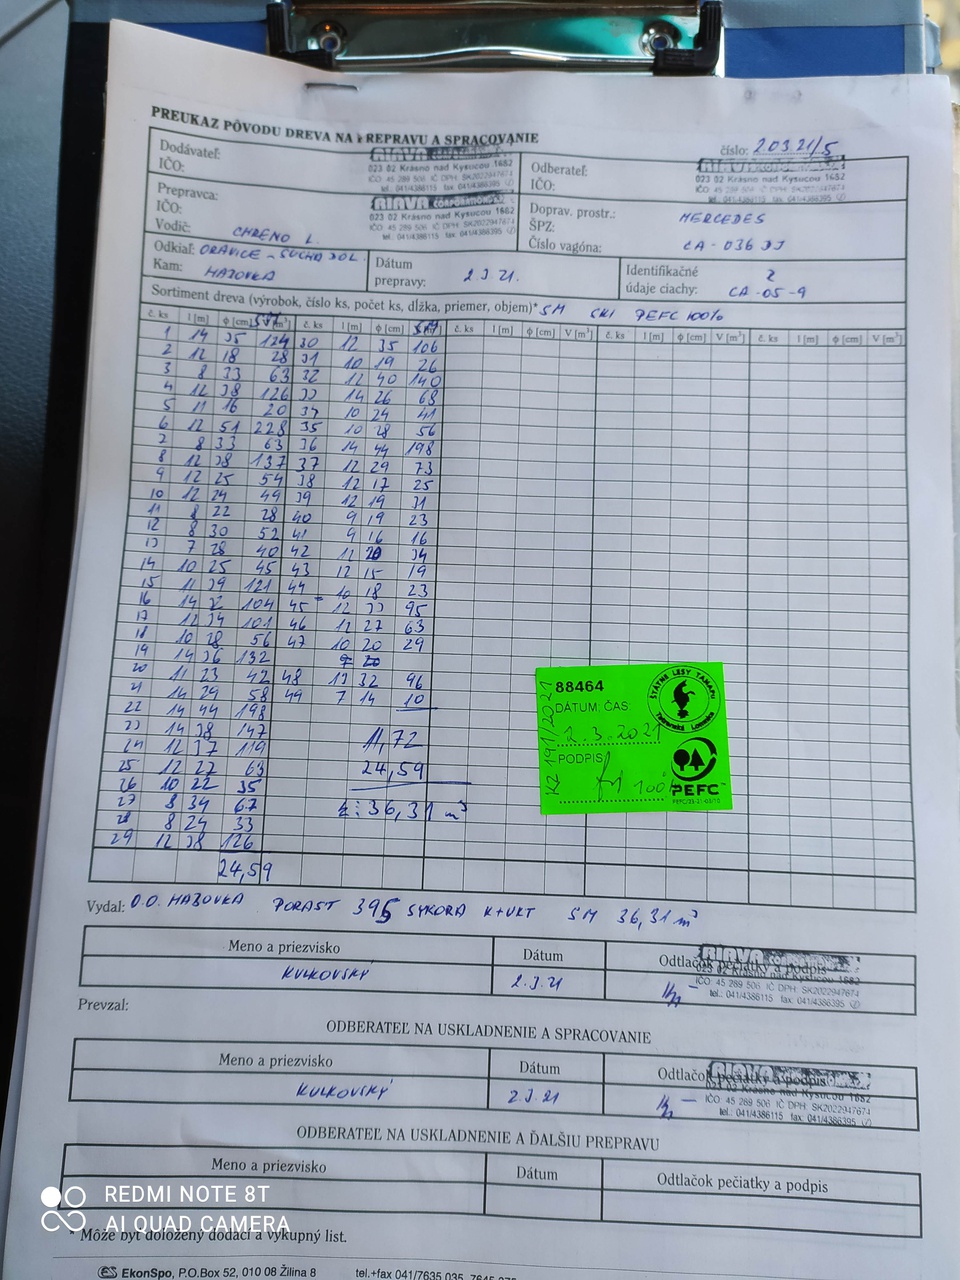 PREUKAZ PÔVODU DREVA NA PREPRAVU A SPRACOVANIE
číslo: 20321/5
Dodávateľ:
IČO:
RIAVA CORPORATION
023 02 Krásno nad Kysucou 1682
IČO: 45 289 506 IČ DPH: SK2022947674
tel.: 041/4386115 fax: 041/4386395
Odberateľ:
IČO:
RIAVA
023 02 Krásno nad Kysucou 1682
IČO: 45 289 506 IČ DPH: SK2022947674
tel.: 041/4386115 fax: 041/4386395
Prepravca:
IČO:
Vodič: CHRENO L.
RIAVA CORPORATION
023 02 Krásno nad Kysucou 1682
IČO: 45 289 506 IČ DPH: SK2022947674
tel.: 041/4386115 fax: 041/4386395
Doprav. prostr.: MERCEDES
ŠPZ: CA - 036 DJ
Číslo vagóna:
Odkiaľ: ORAVICE - SUCHÁ DOL.
Kam: HAJOVKA
Dátum
prepravy: 2.3.21.
Identifikačné 2
údaje ciachy: CA-05-9
Sortiment dreva (výrobok, číslo ks, počet ks, dĺžka, priemer, objem)* SM SKI PEFC 100%
č. ks l [m] ϕ [cm] SM [m³] č. ks l [m] ϕ [cm] SM č. ks l [m] ϕ [cm] V [m³] č. ks l [m] ϕ [cm] V [m³] č. ks l [m] ϕ [cm] V [m³]
1 14 35 124 30 12 35 106
2 12 18 28 31 10 19 26
3 8 33 63 32 12 40 140
4 12 38 126 33 14 26 68
5 11 16 20 34 10 24 41
6 12 51 228 35 10 28 56
7 8 33 63 36 14 44 198
8 12 38 137 37 12 29 73
9 12 25 54 38 12 17 25
10 12 24 49 39 12 19 31
11 8 22 28 40 9 19 23
12 8 30 52 41 9 16 16
13 7 28 40 42 12 20 34
14 10 25 45 43 12 15 19
15 11 39 121 44 10 18 23
16 14 104 45 12 33 95
17 12 34 101 46 12 27 63
18 10 28 56 47 10 20 29
19 14 36 132
20 11 23 42 48 13 32 96
21 14 29 58 49 7 14 10
22 14 44 198
23 14 38 147 11,72
24 12 37 119 24,59
25 12 27 63
26 10 22 35 36,31 m³
27 8 34 67
28 8 24 33
29 12 38 126
24,59
88464
DÁTUM: ČAS:
2.3.2021
PODPIS:
100%
KZ 191/2021
ŠTÁTNE LESY TANAPU
Tatranská Lomnica
PEFC
PEFC/23-21-03/10
Vydal: O.O. HAJOVKA PORAST 395 SYKORA K+VKT SM 36,31 m³
Meno a priezvisko Dátum Odtlačok pečiatky a podpis
KULKOVSKÝ 2.3.21
RIAVA
023 02 Krásno nad Kysucou 1682
IČO: 45 289 506 IČ DPH: SK2022947674
tel.: 041/4386115 fax: 041/4386395
Prevzal:
ODBERATEĽ NA USKLADNENIE A SPRACOVANIE
Meno a priezvisko Dátum Odtlačok pečiatky a podpis
KULKOVSKÝ 2.3.21
RIAVA
023 02 Krásno nad Kysucou 1682
IČO: 45 289 506 IČ DPH: SK2022947674
tel.: 041/4386115 fax: 041/4386395
ODBERATEĽ NA USKLADNENIE A ĎALŠIU PREPRAVU
Meno a priezvisko Dátum Odtlačok pečiatky a podpis
REDMI NOTE 8T
AI QUAD CAMERA
* Môže byť doložený dodací a výkupný list.
EkonSpo, P.O.Box 52, 010 08 Žilina 8 tel.+fax 041/7635 035,